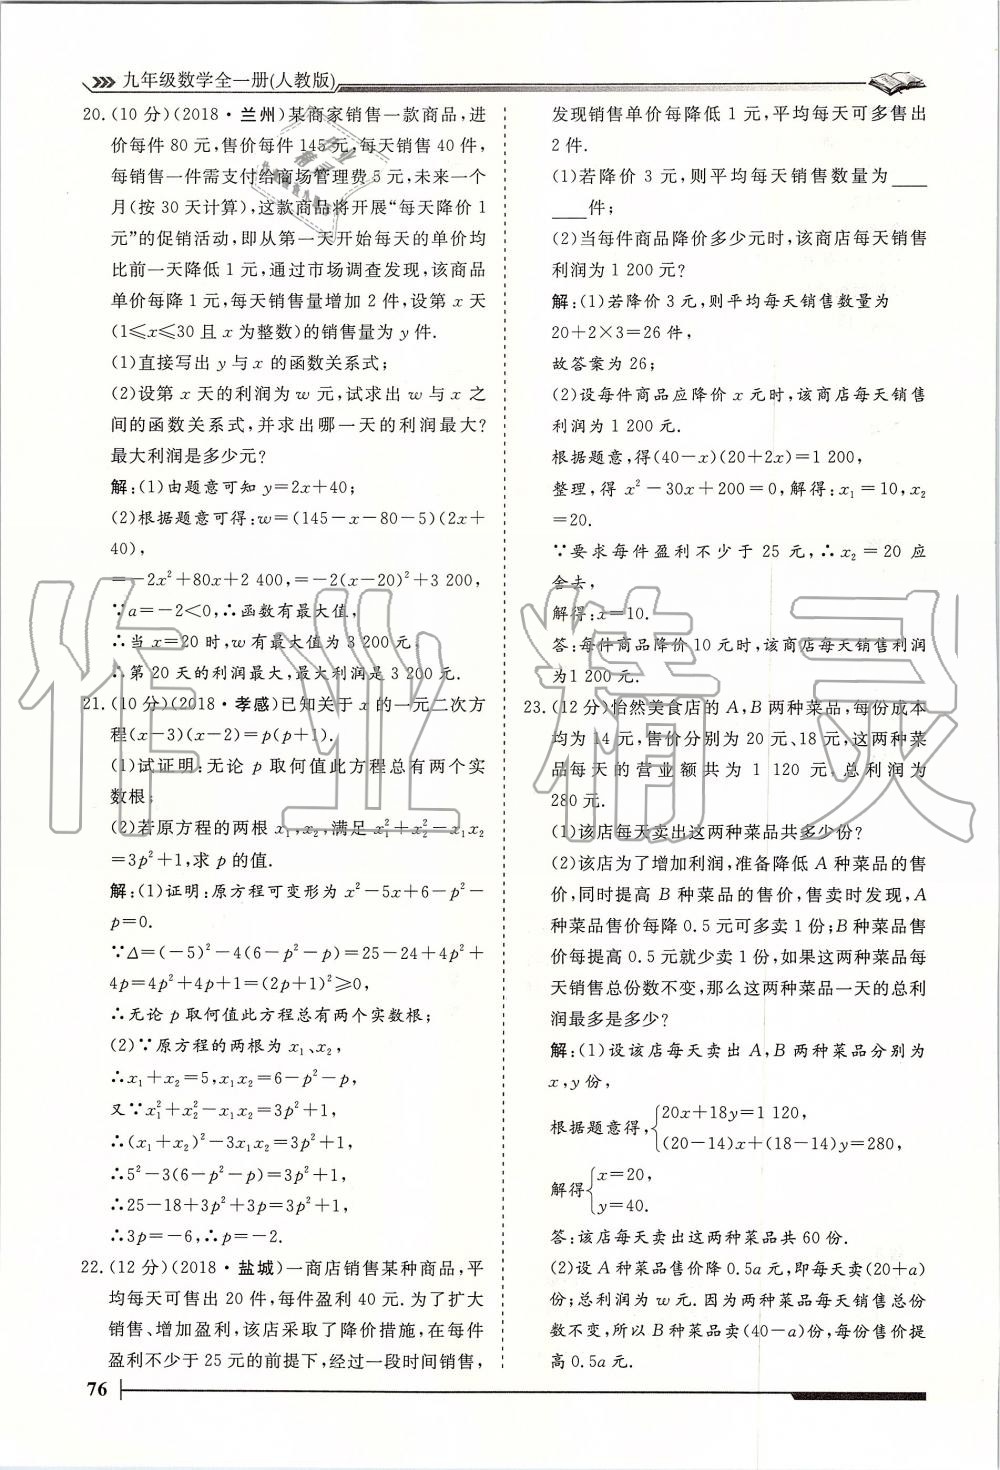 九年级数学全一册(人教版)
20.(10 分)(2018·兰州)某商家销售一款商品,进
价每件 80 元,售价每件 145 元,每天销售 40 件,
每销售一件需支付给商场管理费 5 元,未来一个
月(按 30 天计算),这款商品将开展“每天降价 1
元”的促销活动,即从第一天开始每天的单价均
比前一天降低 1 元,通过市场调查发现,该商品
单价每降 1 元,每天销售量增加 2 件,设第 x 天
(1≤x≤30 且 x 为整数)的销售量为 y 件.
(1)直接写出 y 与 x 的函数关系式;
(2)设第 x 天的利润为 w 元,试求出 w 与 x 之
间的函数关系式,并求出哪一天的利润最大?
最大利润是多少元?
解:(1)由题意可知 y=2x+40;
(2)根据题意可得:w=(145-x-80-5)(2x+
40),
=-2x²+80x+2 400,=-2(x-20)²+3 200,
∵a=-2<0,∴函数有最大值,
∴当 x=20 时,w 有最大值为 3 200 元,
∴第 20 天的利润最大,最大利润是 3 200 元.
21.(10 分)(2018·孝感)已知关于 x 的一元二次方
程(x-3)(x-2)=p(p+1).
(1)试证明:无论 p 取何值此方程总有两个实
数根;
(2)若原方程的两根 x₁,x₂,满足 x₁²+x₂²-x₁x₂
=3p²+1,求 p 的值.
解:(1)证明:原方程可变形为 x²-5x+6-p²-
p=0.
∵Δ=(-5)²-4(6-p²-p)=25-24+4p²+
4p=4p²+4p+1=(2p+1)²≥0,
∴无论 p 取何值此方程总有两个实数根;
(2)∵原方程的两根为 x₁、x₂,
∴x₁+x₂=5,x₁x₂=6-p²-p,
又∵x₁²+x₂²-x₁x₂=3p²+1,
∴(x₁+x₂)²-3x₁x₂=3p²+1,
∴5²-3(6-p²-p)=3p²+1,
∴25-18+3p²+3p=3p²+1,
∴3p=-6,∴p=-2.
22.(12 分)(2018·盐城)一商店销售某种商品,平
均每天可售出 20 件,每件盈利 40 元.为了扩大
销售、增加盈利,该店采取了降价措施,在每件
盈利不少于 25 元的前提下,经过一段时间销售,
发现销售单价每降低 1 元,平均每天可多售出
2 件.
(1)若降价 3 元,则平均每天销售数量为____
____件;
(2)当每件商品降价多少元时,该商店每天销售
利润为 1 200元?
解:(1)若降价 3 元,则平均每天销售数量为
20+2×3=26 件,
故答案为 26;
(2)设每件商品应降价 x 元时,该商店每天销售
利润为 1 200 元.
根据题意,得(40-x)(20+2x)=1 200,
整理,得 x²-30x+200=0,解得:x₁=10,x₂
=20.
∵要求每件盈利不少于 25 元,∴x₂=20 应
舍去,
解得:x=10.
答:每件商品降价 10 元时,该商店每天销售利润
为1 200 元.
23.(12 分)怡然美食店的 A,B 两种菜品,每份成本
均为 14 元,售价分别为 20 元、18 元,这两种菜
品每天的营业额共为 1 120 元,总利润为
280 元.
(1)该店每天卖出这两种菜品共多少份?
(2)该店为了增加利润,准备降低 A 种菜品的售
价,同时提高 B 种菜品的售价,售卖时发现,A
种菜品售价每降 0.5 元可多卖 1 份;B 种菜品售
价每提高 0.5 元就少卖 1 份,如果这两种菜品每
天销售总份数不变,那么这两种菜品一天的总利
润最多是多少?
解:(1)设该店每天卖出 A,B 两种菜品分别为
x,y 份,
根据题意得,{20x+18y=1 120,
(20-14)x+(18-14)y=280,
解得{x=20,
y=40.
答:该店每天卖出这两种菜品共 60 份.
(2)设 A 种菜品售价降 0.5a 元,即每天卖(20+a)
份;总利润为 w 元.因为两种菜品每天销售总份
数不变,所以 B 种菜品卖(40-a)份,每份售价提
高 0.5a 元.
76
作业精灵